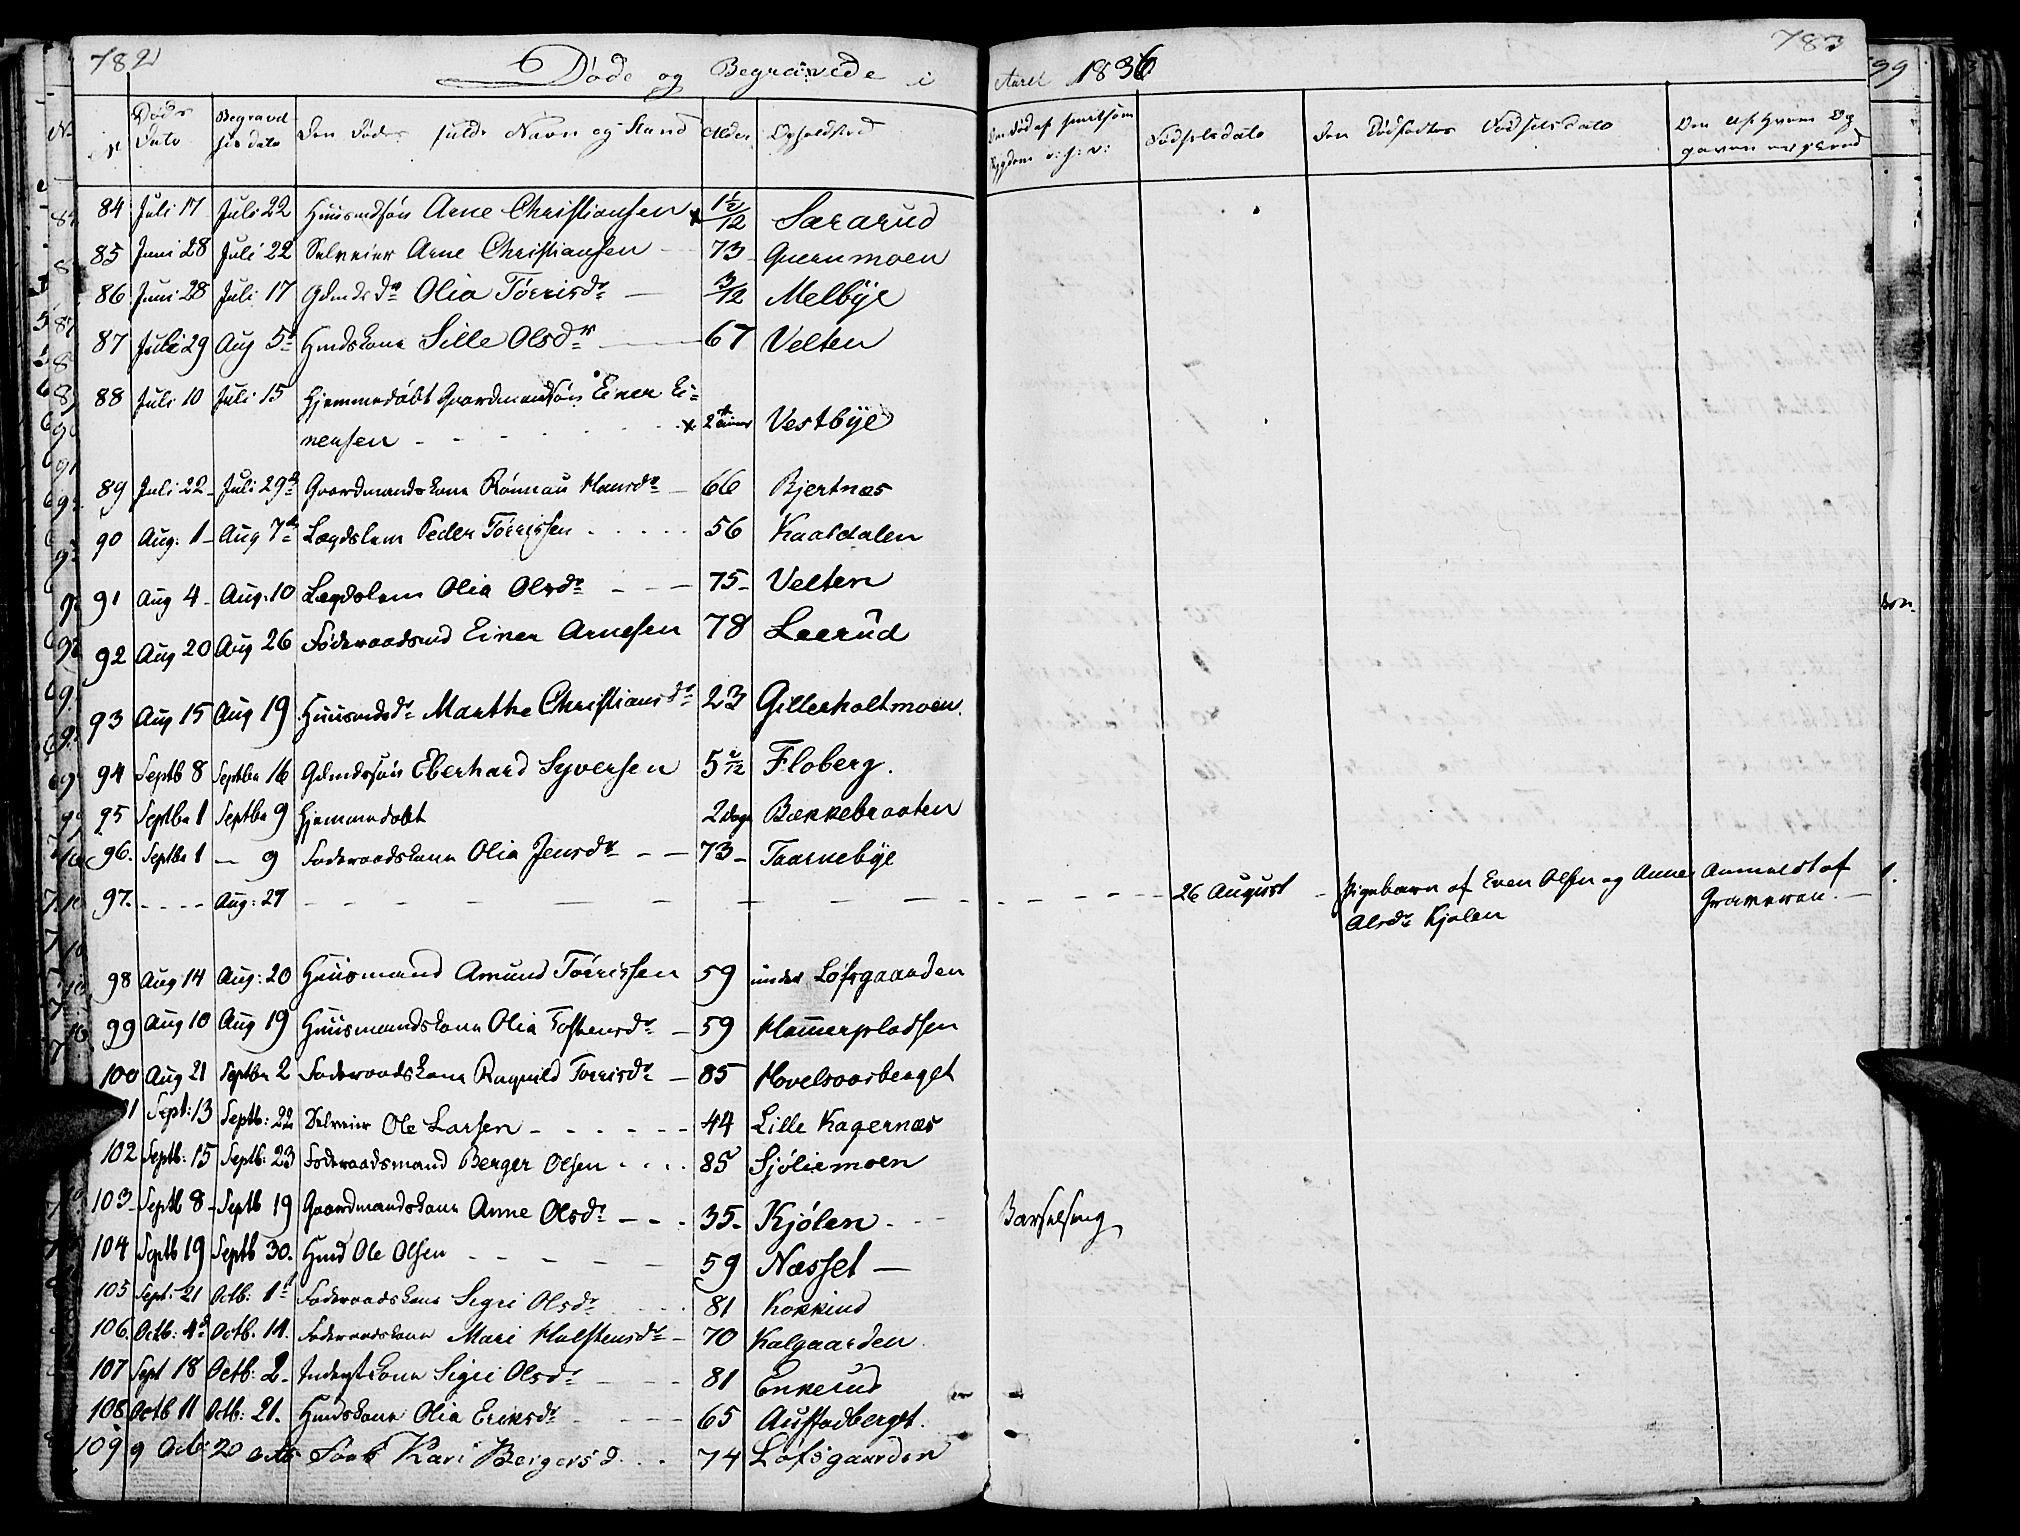 782 Døde og Begravede i Aaret 1836 783
N Døds Dato Begravelses dato Den Dødes fulde Navn og Stand Alder Opholdsted Om død af smitsom Sygdom o: s: v: Fødselsdato Den Dødfødtes Fødselsdato Om af hvem Opgaven er skeed
84 Juli 17 Juli 22 Huusmdsøn Arne Christiansen 1½/12 Sararud
85 Juni 28 Juli 22 Selveier Arne Christiansen — 73 Quernmoen
86 Juni 28 Juli 17 Gdmds Dr Olia Tørrisdr — 3/12 Melbye
87 Juli 29 Aug 5te Hmdskone Sille Olsdr 67 Velten
88 Juli 10 Juli 15 Hjemmedøbt Gaardmandsøn Einer Ei=
nersen 2 timer Vestbye
89 Juli 22 Juli 29de Gaardmandskone Rønnau Hansdr 66 Bjertnæs
90 Aug: 1 Aug 7de Lægdslem Peder Tørrissen 56 Kaaldalen
91 Aug 4 Aug: 10 Lægdslem Olia Olsdr 75 Velten
92 Aug 20 Aug 26 Føderaadsmd Einer Arnesen 78 Leerud
93 Aug 15 Aug 19 Huusmdsdr Marthe Christiansdr 23 Gillerholtmoen
94 Septb 8 Septbr 16 Gdmdssøn Eberhard Syversen 5 2/12 Floberg.
95 Septbr 1 Septbr 9 Hjemmedøbt 2 Dage Bækkebraaten
96. Septbr 1 — 9 Føderaadskone Olia Jensdr 73 Taarnebye
97. Aug: 27 26 August Pigebarn af Even Olsen og Anne Anmeldt af
Olsdr Kjølen Graveren.
98 Aug 14 Aug: 20 Huusmand Amund Tørrissen 59 under Lofsgaarden
99 Aug 10 Aug 19 Huusmandskone Olia Tostensdr 59 Hamerpladsen
100 Aug 21 Septbr 2 Føderaadskone Ragnild Torrisdr 85 Hovelsaasberget
101 Sept: 13 Septb: 22 Selveier Ole Larsen 44 Lille Kagernæs
102 Septb: 15 Septb: 23 Føderaadsmand Berger Olsen 85 Sjøliemoen
103 Septb 8 Septb 19 Gaardmandskone Anne Olsdr 35 Kjølen Barselseng
104 Septb 19 Septb 30. Hmd Ole Olsen 59 Næsset —
105 Sept: 21 Octb: 1st Føderaadskone Sigri Olsdr 81 Kokkind
106. Octb: 4de Octb. 14. Føderaadskone Mari Halstensdr 70 Kalgaarden
107 Sept 18 Octb: 2 Inderstkone Sigri Olsdr 81 Enkerud
108 Octb 11 Octb: 21. Hmdskone Olia Eriksdr 65 Austadberget.
109 9 Octb: 20 Octb Kari Bergersd. 74 Lofsgaarden